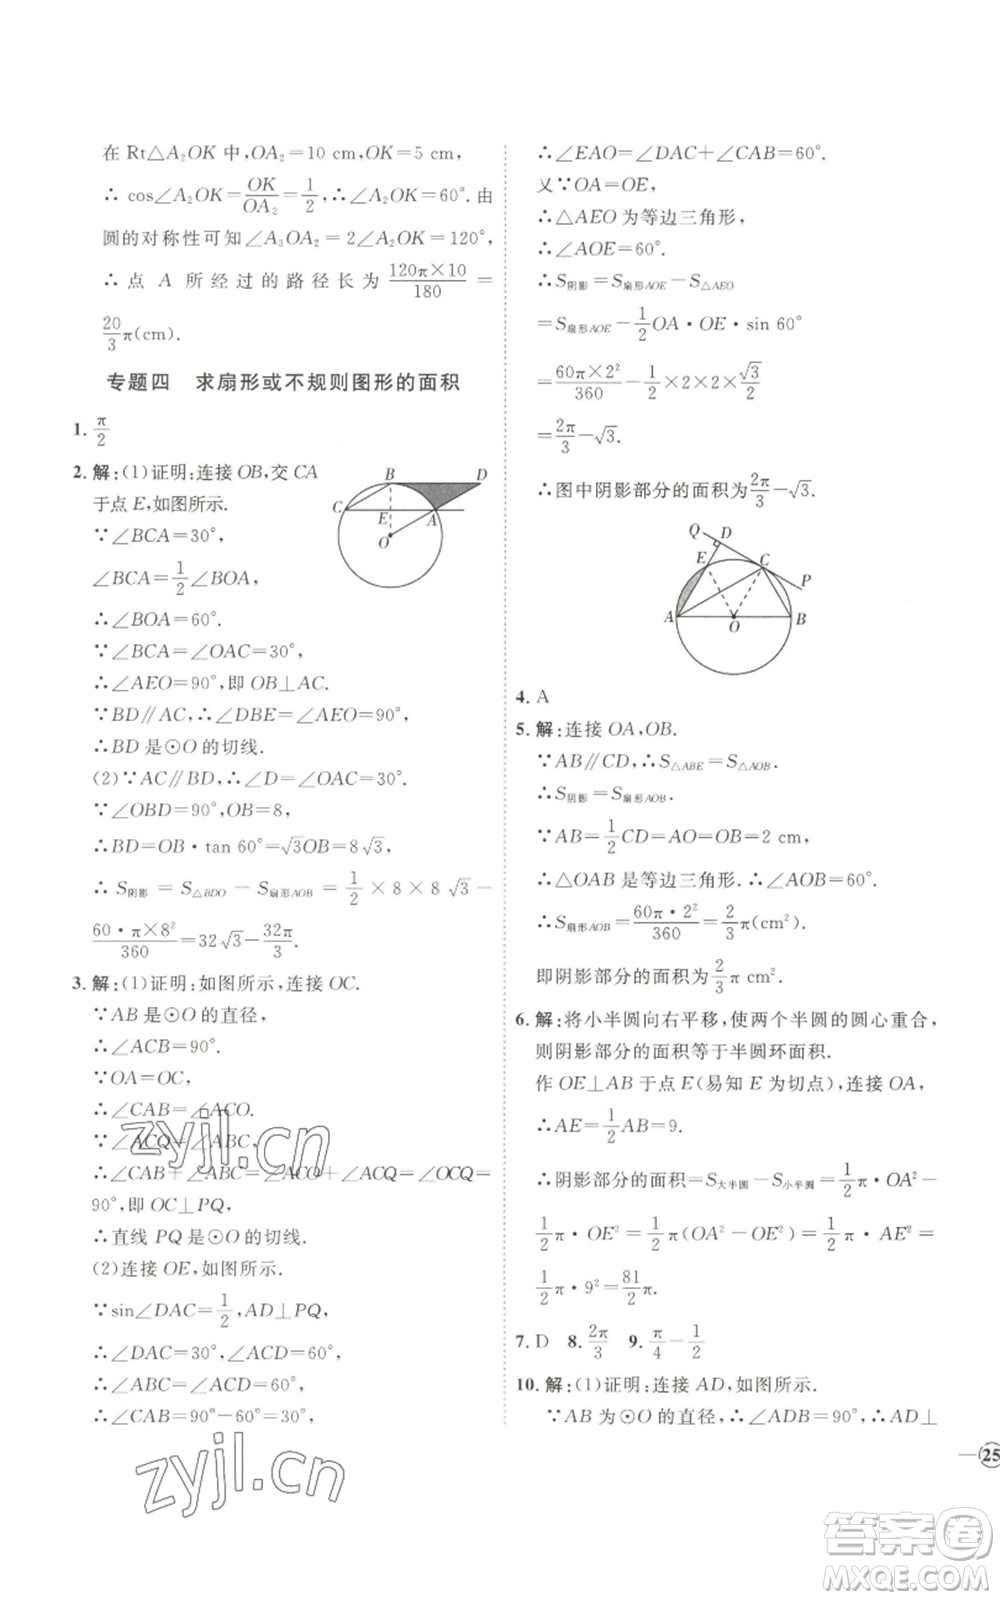 在 Rt△A₂OK 中,OA₂=10 cm,OK=5 cm,
∴ cos∠A₂OK=OK/OA₂=1/2,∴∠A₂OK=60°. 由
圆的对称性可知∠A₃OA₂=2∠A₂OK=120°,
∴ 点 A 所经过的路径长为 120π×10/180=
20/3 π(cm).
专题四 求扇形或不规则图形的面积
1. π/2
2. 解:(1)证明:连接 OB,交 CA
于点 E,如图所示.
∵∠BCA=30°,
∠BCA=1/2∠BOA,
∴∠BOA=60°.
∵∠BCA=∠OAC=30°,
∴∠AEO=90°,即 OB⊥AC.
∵BD∥AC,∴∠DBE=∠AEO=90°.
∴BD 是⊙O 的切线.
(2)∵AC∥BD,∴∠D=∠OAC=30°.
∵∠OBD=90°,OB=8,
∴BD=OB·tan 60°=√3OB=8√3.
∴ S阴影 = S△BDO − S扇形AOB = 1/2 × 8 × 8√3 −
60·π×8²/360=32√3−32π/3.
3. 解:(1)证明:如图所示,连接 OC.
∵AB 是⊙O 的直径,
∴∠ACB=90°.
∵OA=OC,
∴∠CAB=∠ACO.
∵∠ACQ=∠ABC,
∴∠CAB+∠ABC=∠ACO+∠ACQ=∠OCQ=
90°,即 OC⊥PQ.
∴直线 PQ 是⊙O 的切线.
(2)连接 OE,如图所示.
∵sin∠DAC=1/2,AD⊥PQ,
∴∠DAC=30°,∠ACD=60°.
∴∠ABC=∠ACD=60°.
∴∠CAB=90°−60°=30°,
B D
C E A
O
zyjl.cn
zyjl.cn
∴∠EAO=∠DAC+∠CAB=60°.
又∵OA=OE,
∴△AEO 为等边三角形,
∴∠AOE=60°.
∴S阴影=S扇形AOE−S△AEO
=S扇形AOE−1/2 OA·OE·sin 60°
=60π×2²/360−1/2×2×2×√3/2
=2π/3−√3.
∴图中阴影部分的面积为 2π/3−√3.
Q D
E C
P
A O B
4. A
5. 解:连接 OA,OB.
∵AB∥CD,∴S△ABE=S△AOB.
∴S阴影=S扇形AOB.
∵AB=1/2 CD=AO=BO=2 cm,
∴△OAB 是等边三角形.∴∠AOB=60°.
∴S扇形AOB=60π·2²/360=2/3 π(cm²).
即阴影部分的面积为 2/3 π cm².
6. 解:将小半圆向右平移,使两个半圆的圆心重合,
则阴影部分的面积等于半圆环面积.
作 OE⊥AB 于点 E(易知 E 为切点),连接 OA,
∴AE=1/2 AB=9.
∴阴影部分的面积=S大半圆−S小半圆=1/2 π·OA²−
1/2 π·OE²=1/2 π(OA²−OE²)=1/2 π·AE²=
1/2 π·9²=81/2 π.
7. D 8. 2π/3 9. π/4−1/2
10. 解:(1)证明:连接 AD,如图所示.
∵AB 为⊙O 的直径,∴∠ADB=90°,∴AD⊥
25
答案卷
MXQE.COM